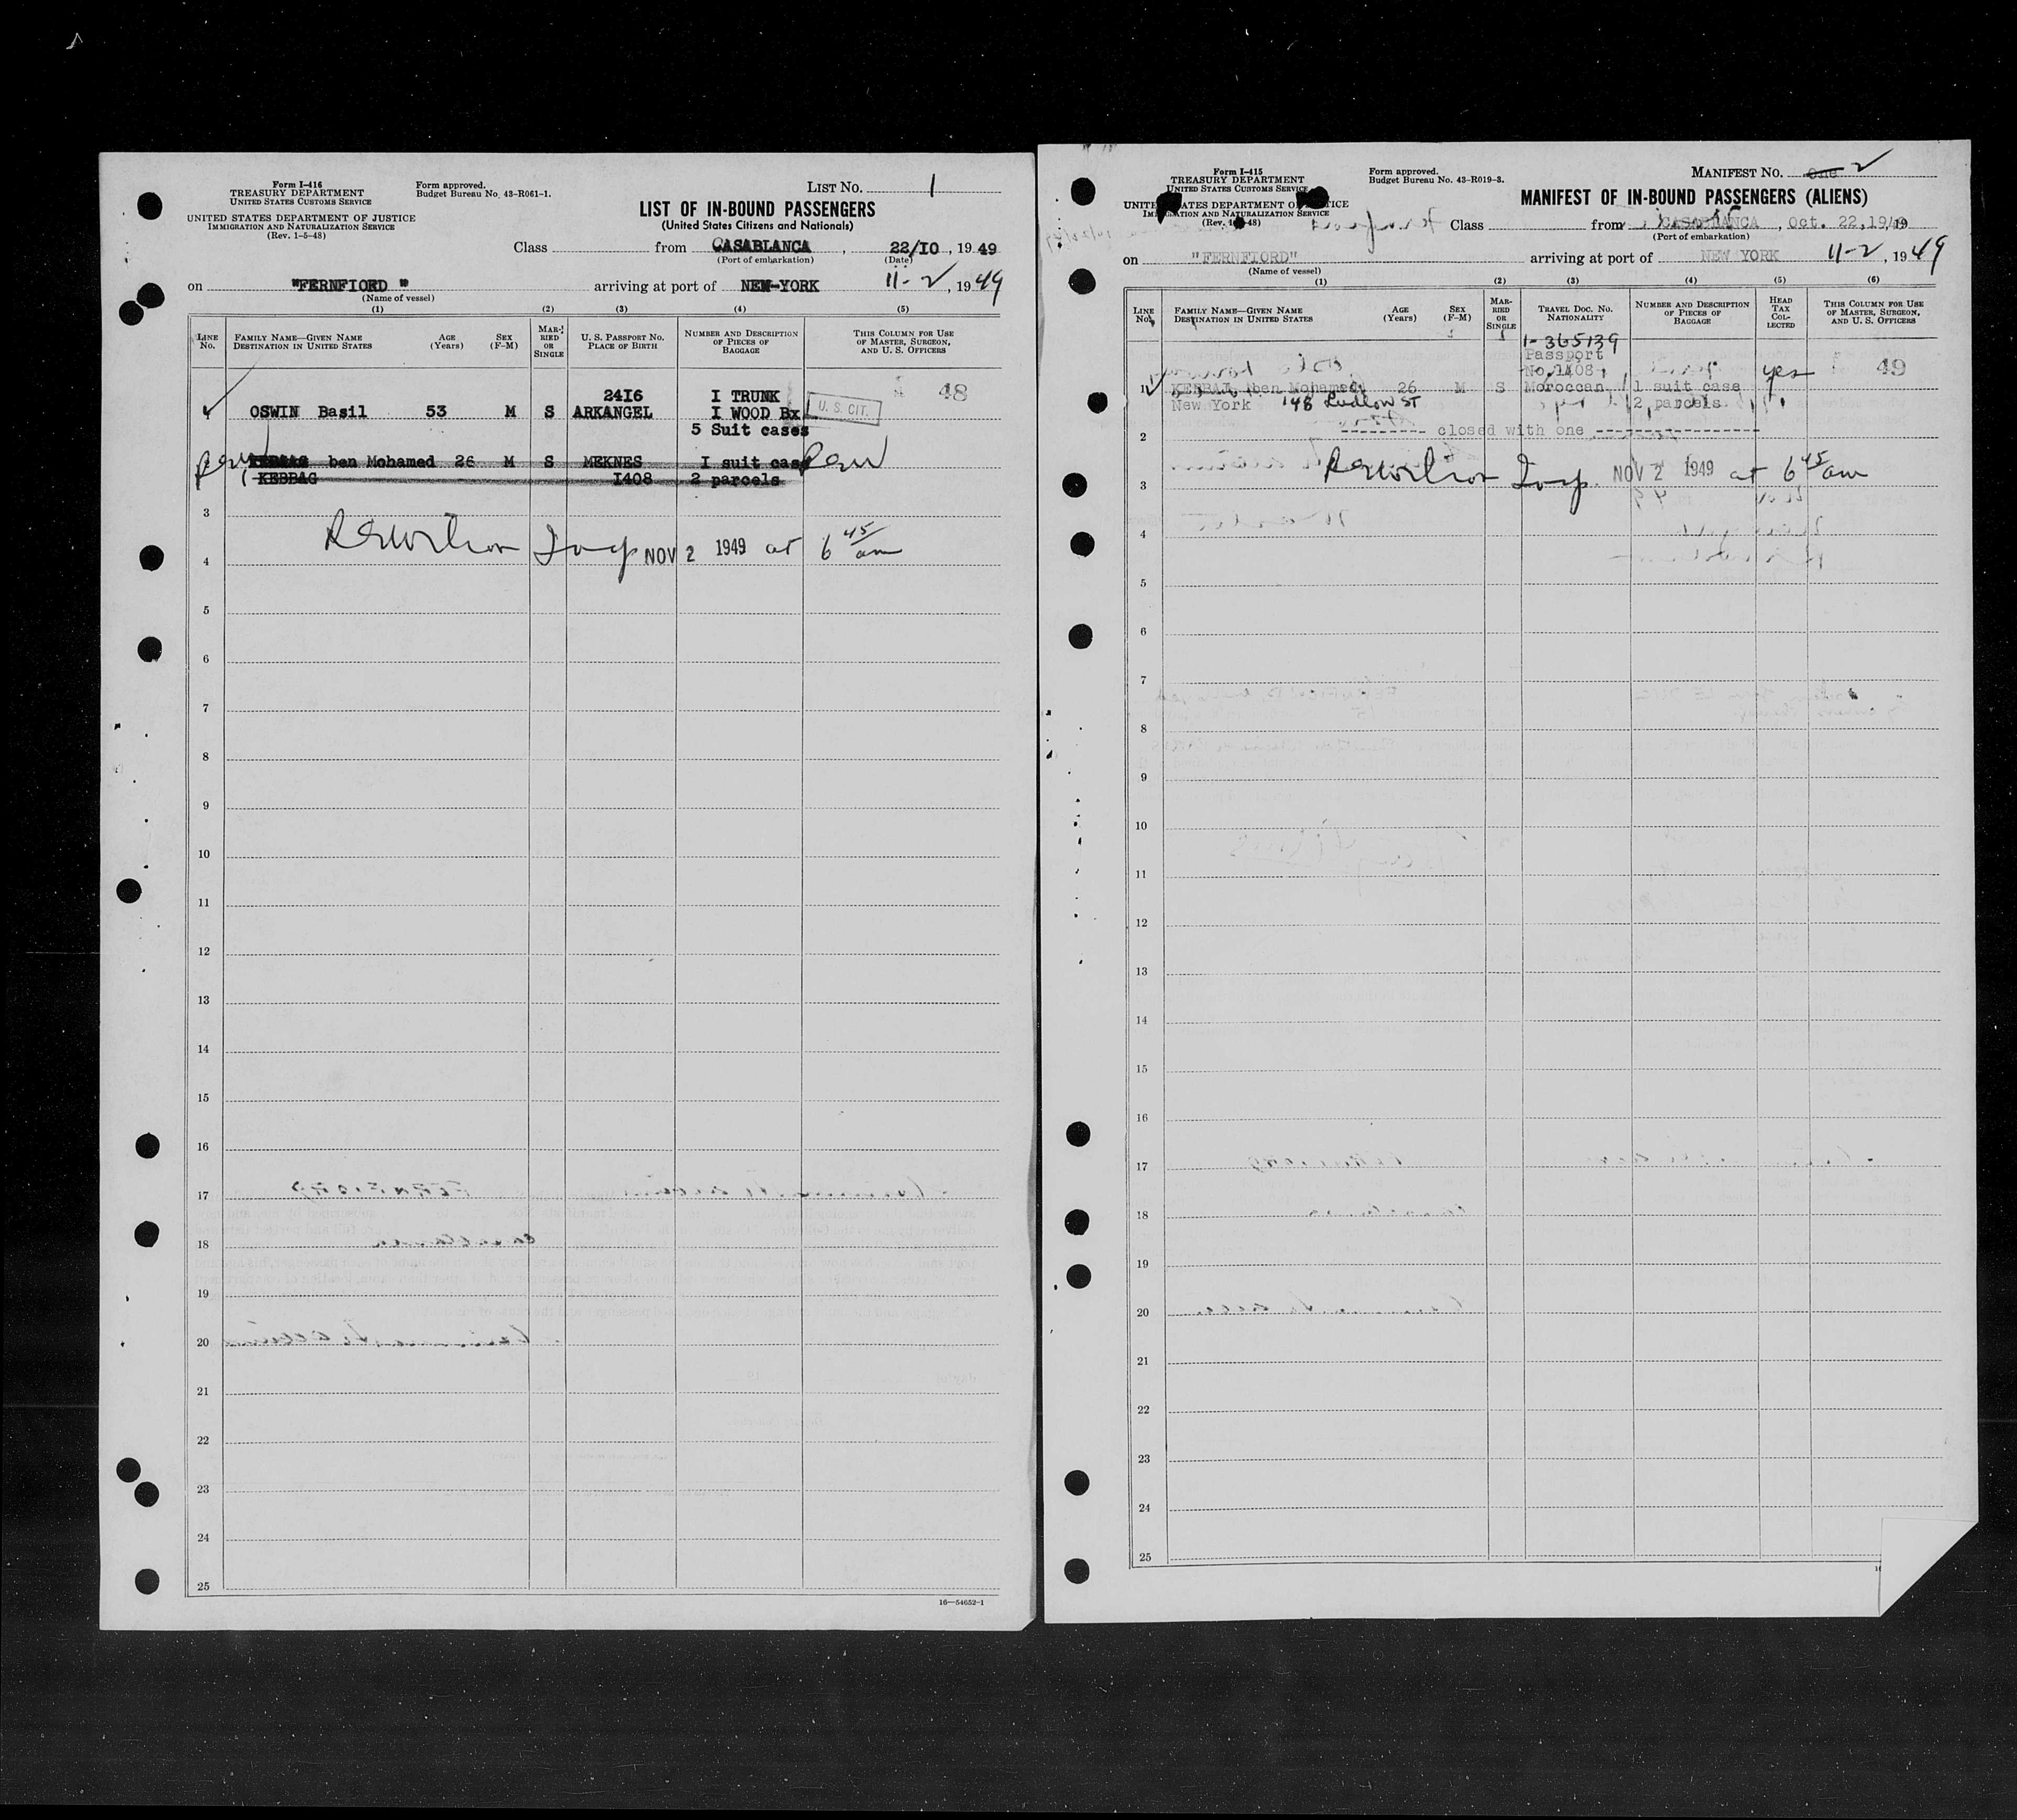 Form I-416
TREASURY DEPARTMENT
UNITED STATES CUSTOMS SERVICE
UNITED STATES DEPARTMENT OF JUSTICE
IMMIGRATION AND NATURALIZATION SERVICE
(Rev. 1-5-48)
Form approved.
Budget Bureau No. 43-R061-1.
LIST NO. 1
LIST OF IN-BOUND PASSENGERS
(United States Citizens and Nationals)
Class from CASABLANCA, 22/I0, 1949
(Port of embarkation) (Date)
on "FERNFIORD " arriving at port of NEW-YORK 11-2, 1949
(Name of vessel)
(1) (2) (3) (4) (5)
LINE No. FAMILY NAME—GIVEN NAME DESTINATION IN UNITED STATES AGE (Years) SEX (F-M) MARRIED OR SINGLE U. S. PASSPORT NO. PLACE OF BIRTH NUMBER AND DESCRIPTION OF PIECES OF BAGGAGE THIS COLUMN FOR USE OF MASTER, SURGEON, AND U. S. OFFICERS
24I6 I TRUNK 48
OSWIN Basil 53 M S ARKANGEL I WOOD Bx U. S. CIT.
5 Suit cases
ben Mohamed 26 M S MEKNES I suit case
KEBBAG I408 2 parcels
3
NOV 2 1949 at 6 45 am
4
5
6
7
8
9
10
11
12
13
14
15
16
17
18
19
20
21
22
23
24
25
16—54652-1
Form I-415
TREASURY DEPARTMENT
UNITED STATES CUSTOMS SERVICE
UNITED STATES DEPARTMENT OF JUSTICE
IMMIGRATION AND NATURALIZATION SERVICE
(Rev. 1-48)
Form approved.
Budget Bureau No. 43-R019-3.
MANIFEST NO. One 2
MANIFEST OF IN-BOUND PASSENGERS (ALIENS)
Class from CASABLANCA, Oct. 22, 1949
(Port of embarkation)
on "FERNFIORD" arriving at port of NEW YORK 11-2, 1949
(Name of vessel)
(1) (2) (3) (4) (5) (6)
LINE No. FAMILY NAME—GIVEN NAME DESTINATION IN UNITED STATES AGE (Years) SEX (F-M) MARRIED OR SINGLE TRAVEL DOC. NO. NATIONALITY NUMBER AND DESCRIPTION OF PIECES OF BAGGAGE HEAD TAX COLLECTED THIS COLUMN FOR USE OF MASTER, SURGEON, AND U. S. OFFICERS
1-365139
Passport
No. 1408 yes 49
1 ben Mohamed 26 M S Moroccan 1 suit case
New York 148 Ludlow ST 2 parcels
--------- closed with one -----------------
2
NOV 2 1949 at 6 45 am
3
4
5
6
7
8
9
10
11
12
13
14
15
16
17
18
19
20
21
22
23
24
25